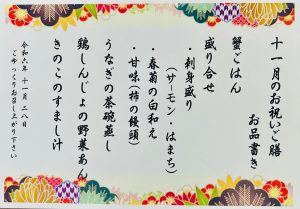 十一月のお祝いご膳
お品書き
蟹ごはん
盛り合せ
・刺身盛り
(サーモン・はまち)
・春菊の白和え
・甘味(柿の饅頭)
うなぎの茶碗蒸し
鶏しんじょの野菜あん
きのこのすまし汁
令和六年 十一月 二八日
ごゆっくりお召し上がり下さい